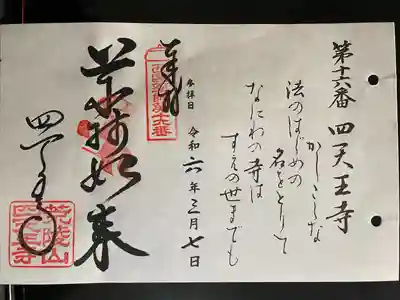 第十六番 四天王寺
かしこしな
法のはじめの名をとりて
なにわの寺は
すえの世までも
参拝日 令和六年三月七日
奉拝
第十六番
薬師如来
四天王寺
荒陵山
四天王寺